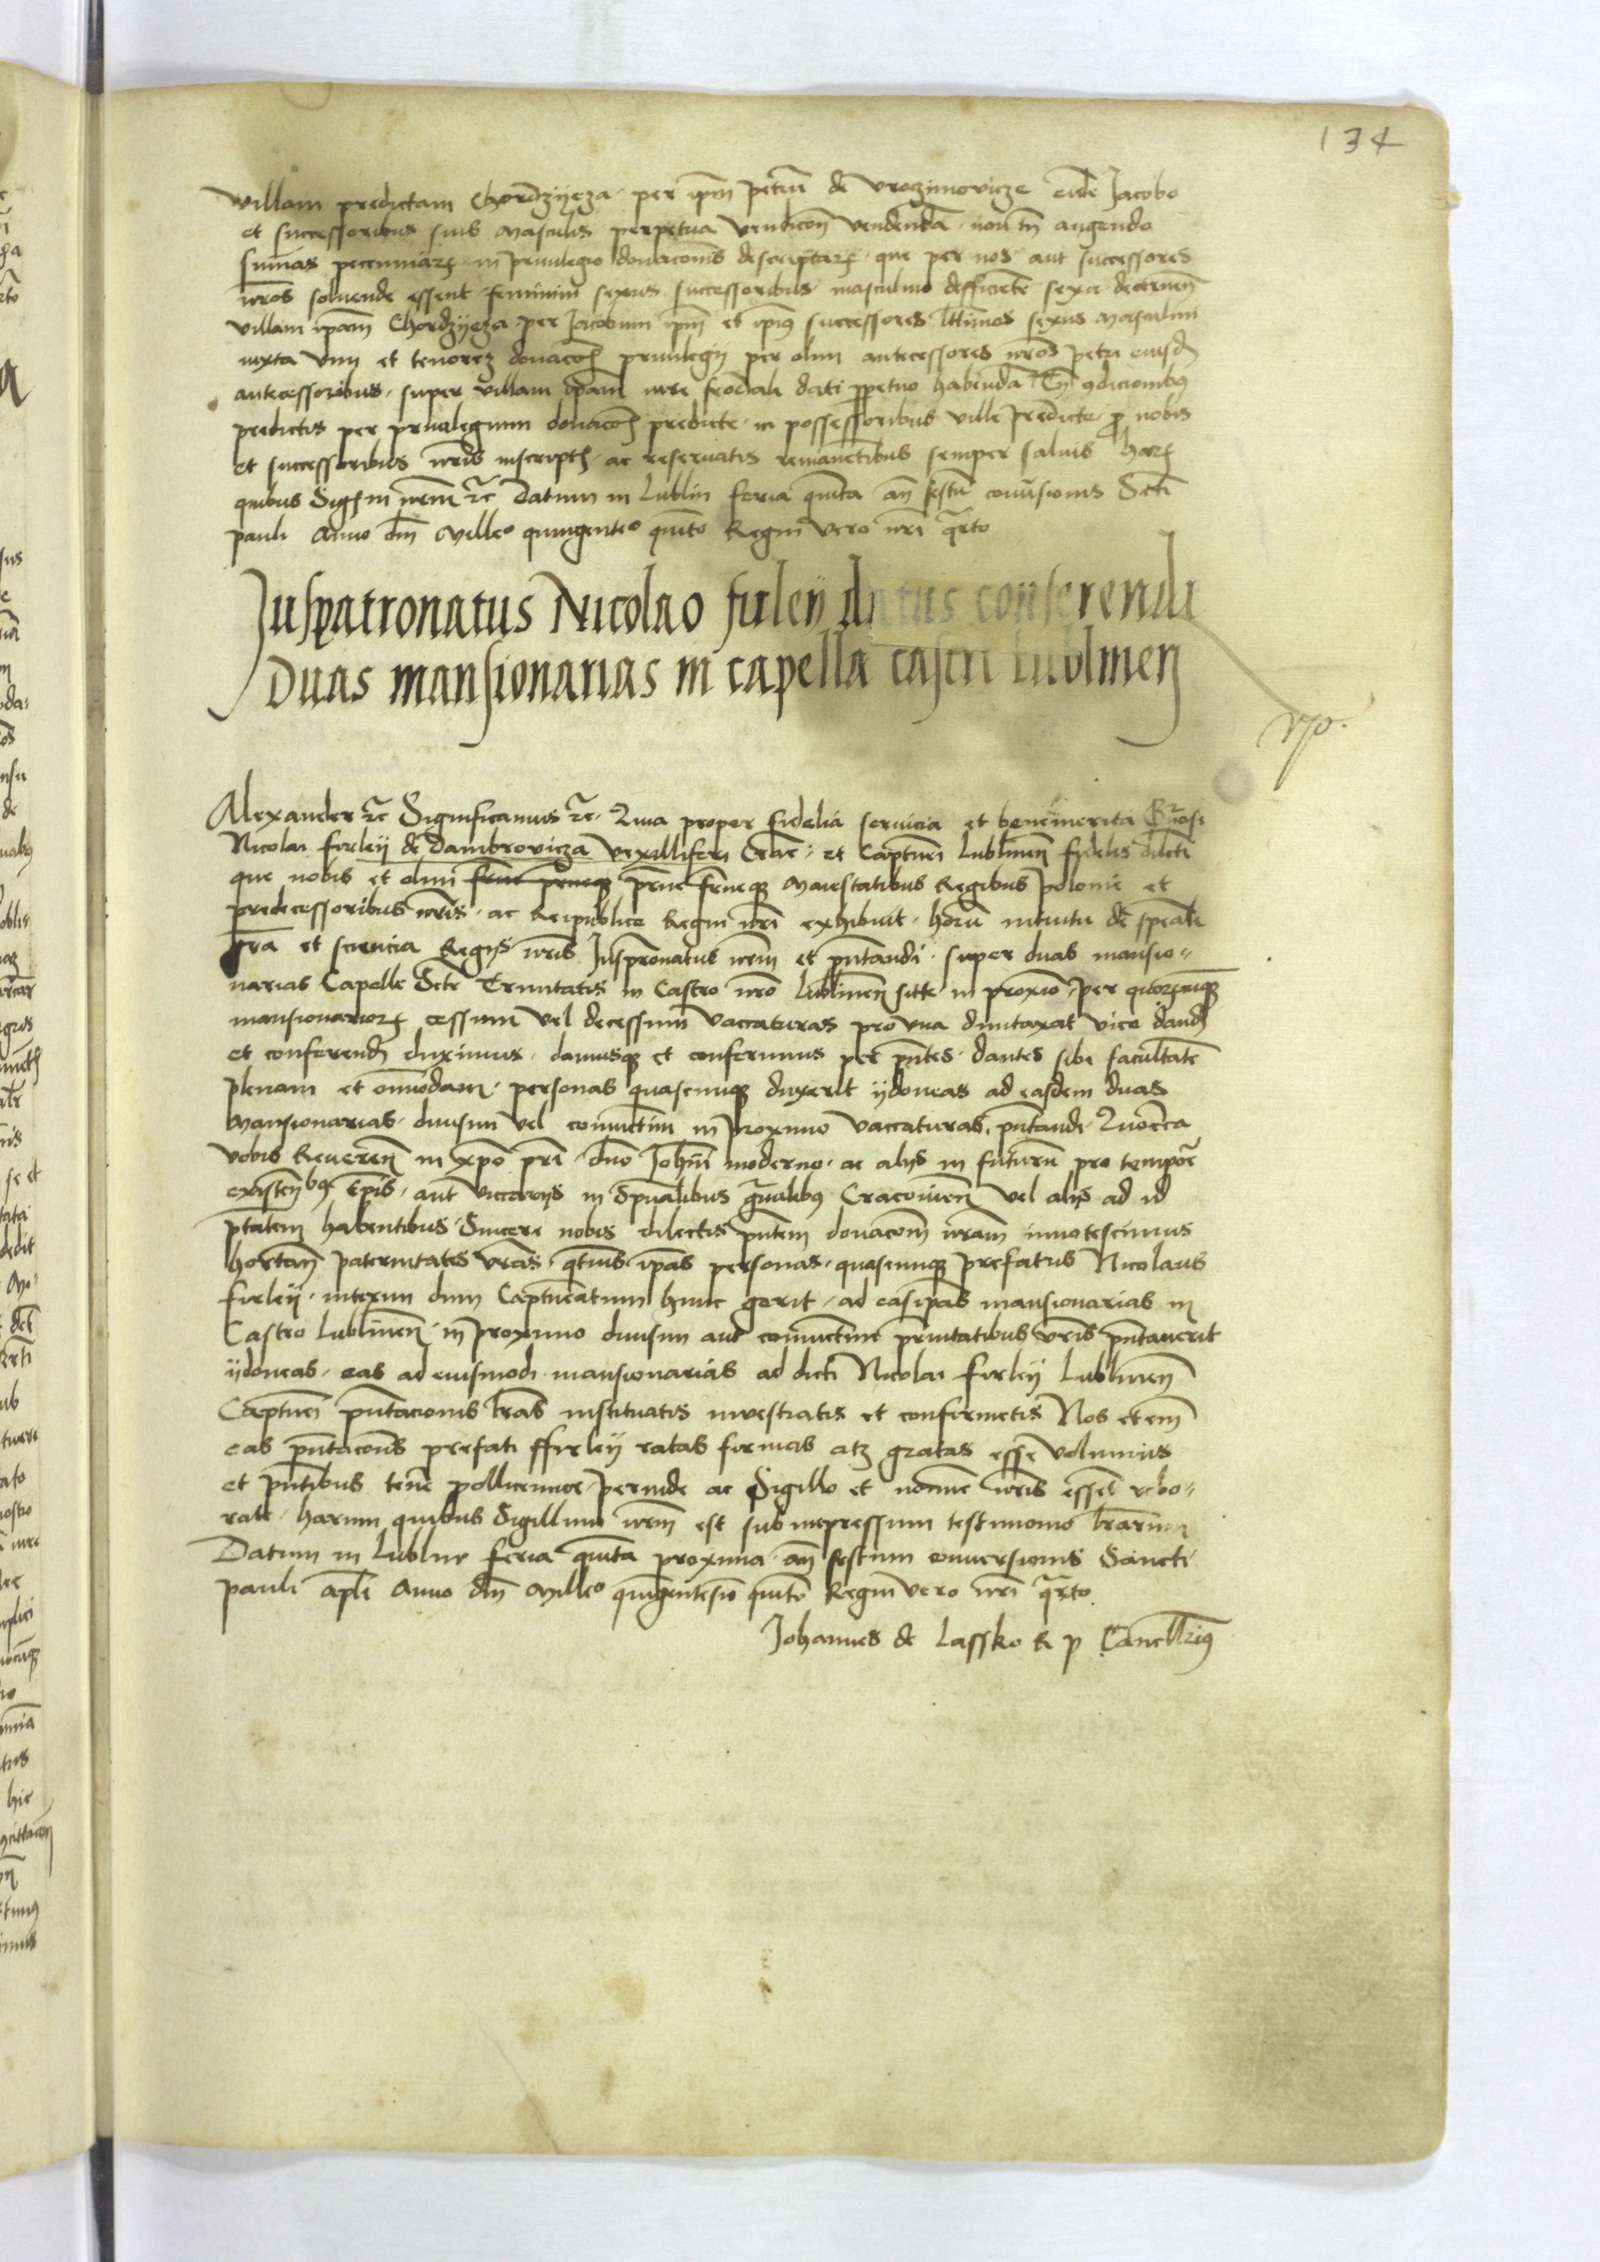 134
villam predictam Chordzyeza per ipm Petru de Vrozimovicze eide Jacobo
et successoribus suis masculis perpetua vendicoe vendenda non tn augendo
sumas pecuniar in privilegio donaconis descriptar que per nos aut successores
nros solvende essent feminini sexus successoribus masculino defficiete sexu decernen
villam ipam Chordzyeza per Jacobum ipm et ipius successores lttimos sexus masculini
iuxta vim et tenorez donacois privilegij per olim antecessores nros Petri eiusd
antecessoribus super villam ipam iure feodali dati perpetuo habenda Cu condicionibus
predictis per privilegium donacois predicte in possessoribus ville predicte pro nobis
et successoribus nris inscriptis ac reservatis remanetibus semper salvis Har
quibus Sig in nrum etc Datum in Lublin feria quinta an festu conversionis Scti
Pauli Anno dni Milleo quingenteo quinto Regni vero nri qrto
Juspatronatus Nicolao firleij datus conferendi
Duas mansionarias in capella castri lublinen
Alexander etc Significamus etc Quia proper fidelia servicia et benemerita Gnosi
Nicolai firleij de Dambrovicza vexilliferi Crac et Captnei Lublinen fidelis dilecti
que nobis et olim frne prneque prne frneque Maiestatibus Regibus Polonie et
predecessoribus nris ac Reipublice Regni nri exhibuit horu intuitu de speali
gra et sciencia Regijs nris Juspronatus nrm et pntandi super duas mansio
narias Capelle Scte Trinitatis in Castro nro Lublinen sitte in proximo per quorcunque
mansionarior cessum vel decessum vaccaturas pro una dumtaxat vice dand
et conferend duximus damusque et conferimus per pntes dantes sibi facultate
plenam et omnodam personas quascunque duxerit ydoneas ad easdem duas
Mansionarias divisim vel coniunctim in proximo vaccaturas pntandi Quocca
vobis Reveren in xpo pri dno Johni moderno ac alijs in futuru pro tempore
existenbus Epis aut viccarijs in spualibus gnalibus Cracovien vel alijs ad id
ptatem habentibus Sincere nobis dilectis pntem donacom nram innotescimus
hortan paternitates vras qtnus ipas personas quascunque prefatus Nicolaus
firleij interim dum Captneatum hunc gerit ad easipas mansionarias in
Castro Lublinen in proximo divisim aut coniunctim prnitatibus vris pntaverit
ydoneas eas ad eiusmodi mansionarias ad dicti Nicolai firleij Lublinen
Captnei pntacionis lras instituatis investiatis et confirmetis Nos etem
eas pntacois prefati ffirleij ratas firmas atz gratas esse volumus
et pntibus tene pollicemur perinde ac Sigillo et nomine nris essent robo
rate harum quibus Sigillum nrm est subimpressum testimonio lrarum
Datum in Lublin feria quinta proxima an festum conversionis Sancti
Pauli apli Anno dni Milleo quingentesimo quinto Regni vero nri qrto
Johannes de Lassko R P Cancellarius